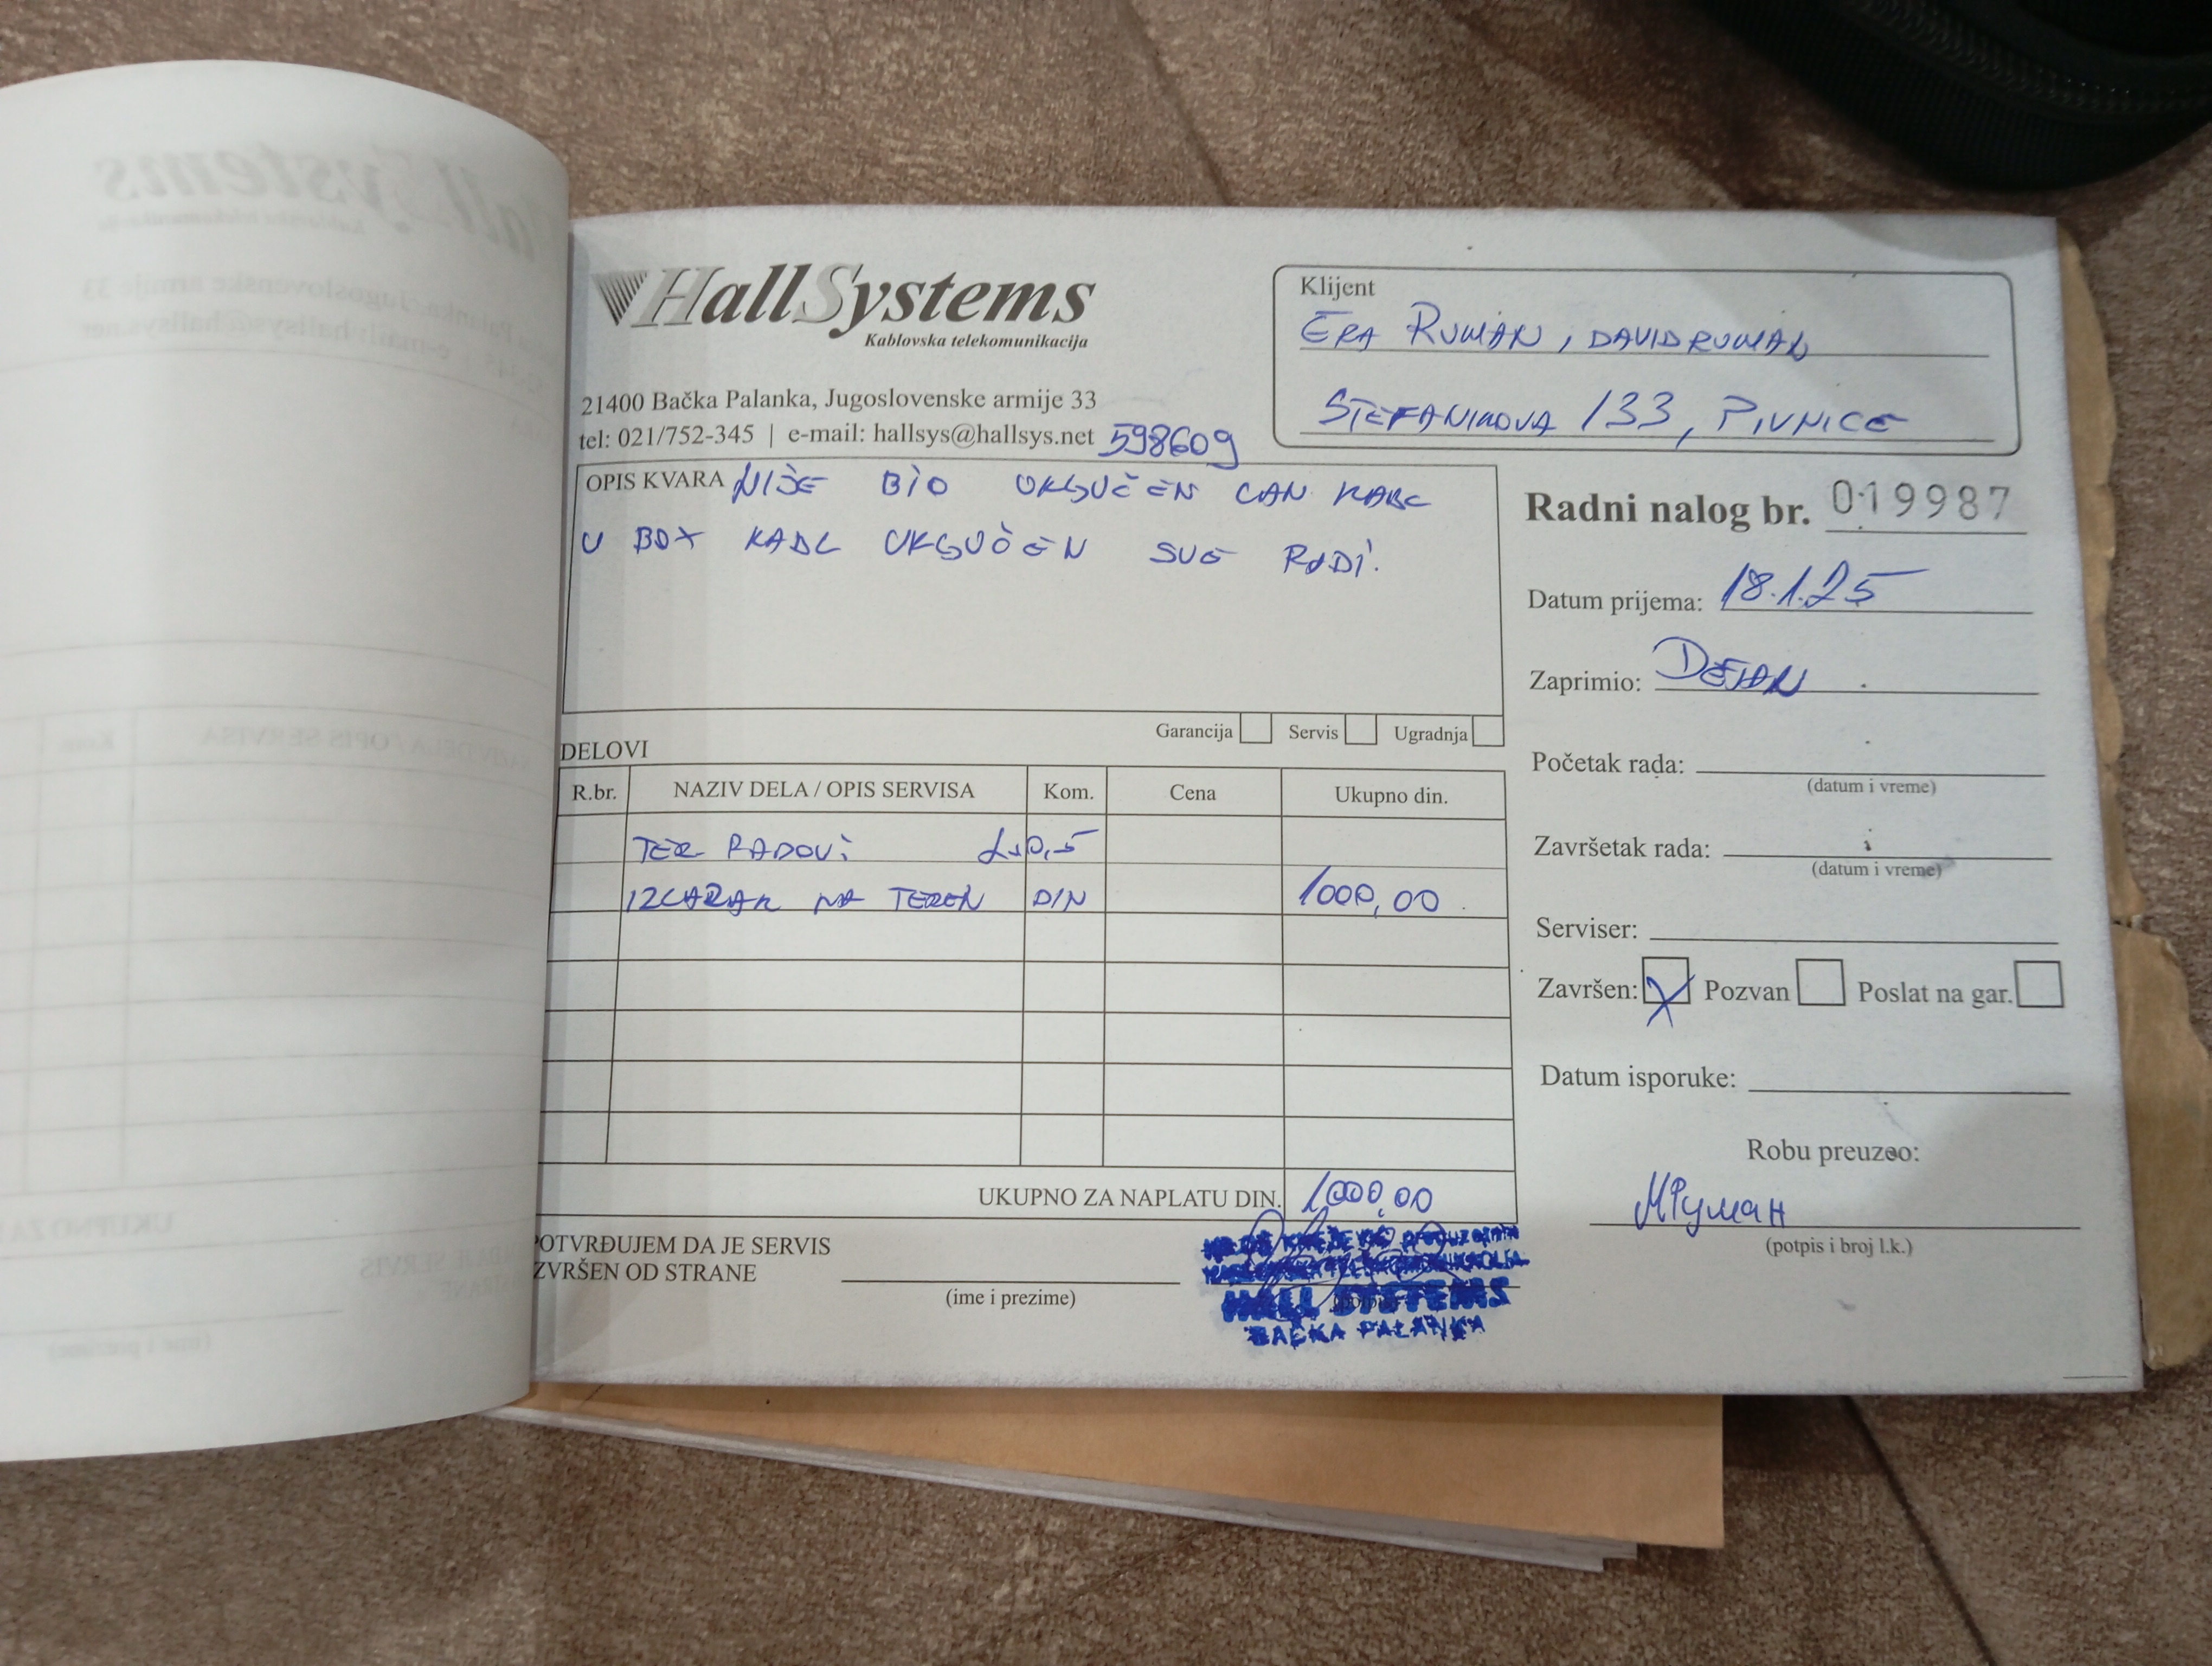 HallSystems
Kablovska telekomunikacija
21400 Bačka Palanka, Jugoslovenske armije 33
tel: 021/752-345 | e-mail: hallsys@hallsys.net 598609
Klijent
ERA RUMAN, DAVID RUMAN
STEFANIKOVA 133, PIVNICE
OPIS KVARA NIJE BIO UKLJUČEN LAN KABL
U BOX KABL UKLJUČEN SVE RADI.
Garancija Servis Ugradnja
Radni nalog br. 019987
Datum prijema: 18.1.25
Zaprimio: DEJAN
Početak rada:
(datum i vreme)
Završetak rada:
(datum i vreme)
Serviser:
Završen: X Pozvan Poslat na gar.
Datum isporuke:
Robu preuzeo:
МРуман
(potpis i broj l.k.)
DELOVI
R.br. NAZIV DELA / OPIS SERVISA Kom. Cena Ukupno din.
TER RADOVI 0,5
IZLAZAK NA TEREN DIN 1000,00
UKUPNO ZA NAPLATU DIN. 1000,00
OTVRĐUJEM DA JE SERVIS
ZVRŠEN OD STRANE
(ime i prezime)
HALL SYSTEMS
BAČKA PALANKA